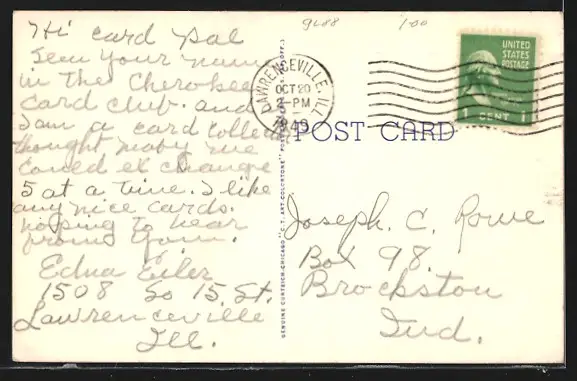 9688 1/00
Hi card pal
seen your name
in the Cherokee
Card club. and
I am a card collector
thought maby we
could ex change
5 at a time. I like
any nice cards.
hoping to hear
from you.
Edna Eiler
1508 So 15, St.
Lawrenceville
Ill.
LAWRENCEVILLE, ILL
OCT 20
2-PM
1949
UNITED
STATES
POSTAGE
1 CENT 1
POST CARD
GENUINE CURTEICH-CHICAGO "C.T. ART-COLORTONE" POST CARD
Joseph. C. Rowe
Box 98.
Brockston
Ind.